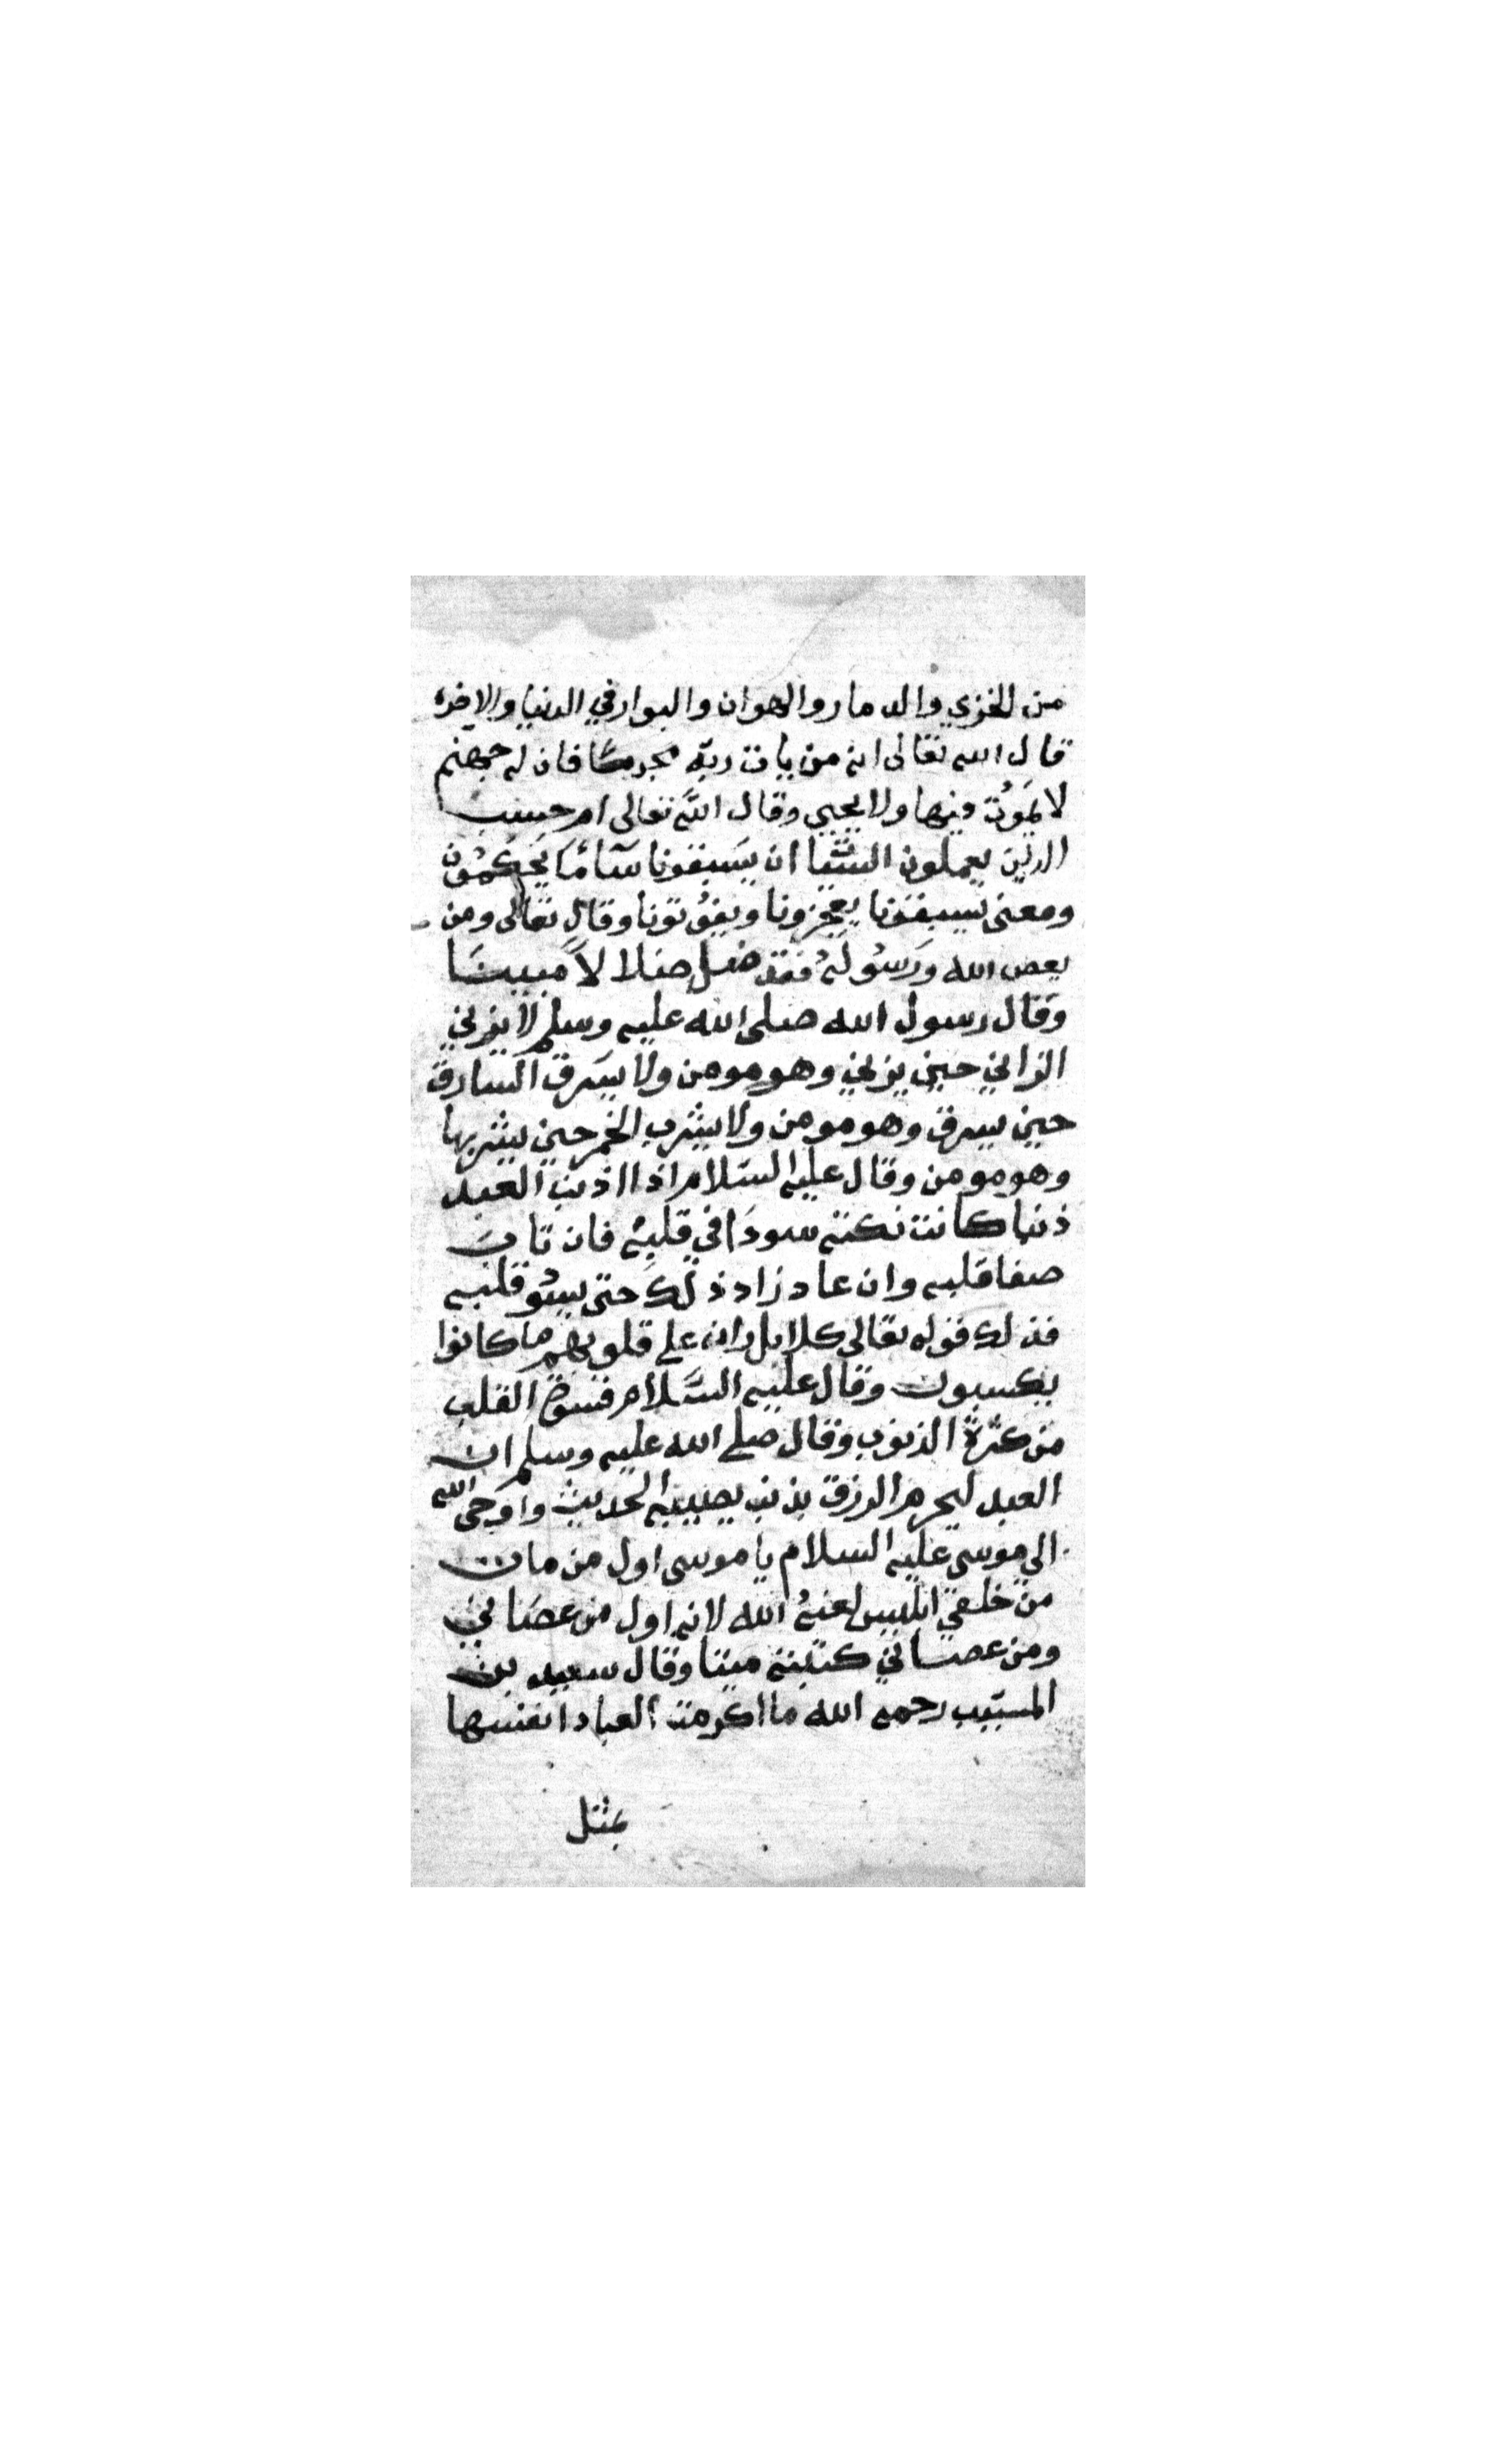 من الخزي والدمار والهوان والبوار في الدنيا والاخرة
قال الله تعالى انه من يات ربّه مجرمًا فان له جهنم
لا يَموُت فيها ولا يحيى وقال اللّه تعالى ام حسب
الذين يعملون السّيا ان يَسبقونا سآء مَا يَحكمُون
ومعنى يسبقونا يعجزونا ويفوُتونا وقال تعالى ومن
يعص الله ورَسُولهُ فقد ضل ضلالاً مبينًا
وقال رسول الله صلى الله عليه وسلم لا يزني
الزاني حين يزني وهو مومن ولا يسَرق السّارق
حين يسرق وهو مومن ولا يشرب الخمر حين يشربها
وهو مومن وقال عليه السّلام اذا اذنب العبد
ذنبا كانت نكتة سودَا في قلبهُ فان تابَ
صفا قلبه وان عاد زاد ذلك حتى يسُو قلبه
فذلك قوله تعالى كلا بل ران على قلوبهم ما كانوا
يكسبون وقال عليه السَّلام قسوة القلب
من كثرة الذنوب وقال صلى الله عليه وسلم ان
العبد ليحرم الرزق بذنب يصيبه الحديث واوحَى الله
الى موسى عليه السلام يا موسى اول من مات
من خلقي ابليس لعنهُ الله لانه اول من عصَاني
ومن عصاني كتبته ميتا وقال سعيد بن
المسيّب رحمه الله ما اكرمت العباد انفسها
بمثل